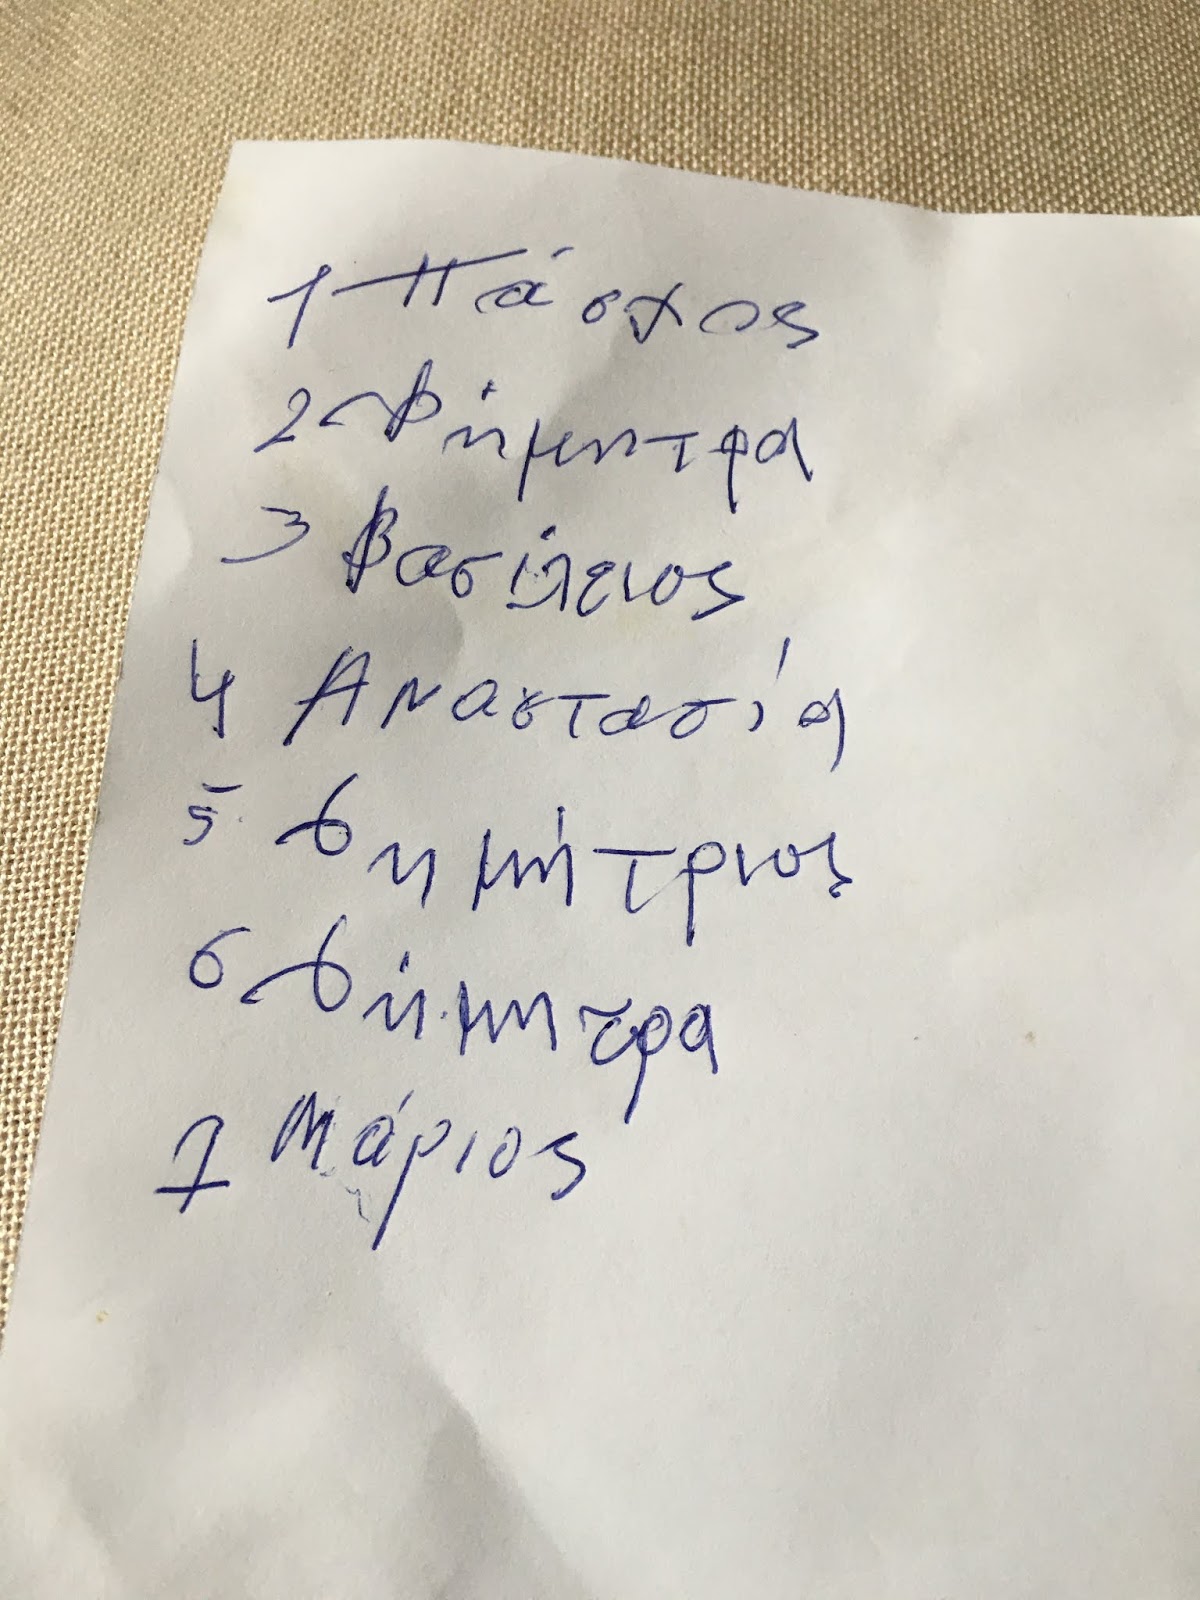 1 Πάσχος
2 Δήμητρα
3 Βασίλειος
4 Αναστασία
5 Δημήτριος
6 Δήμητρα
7 Μάριος